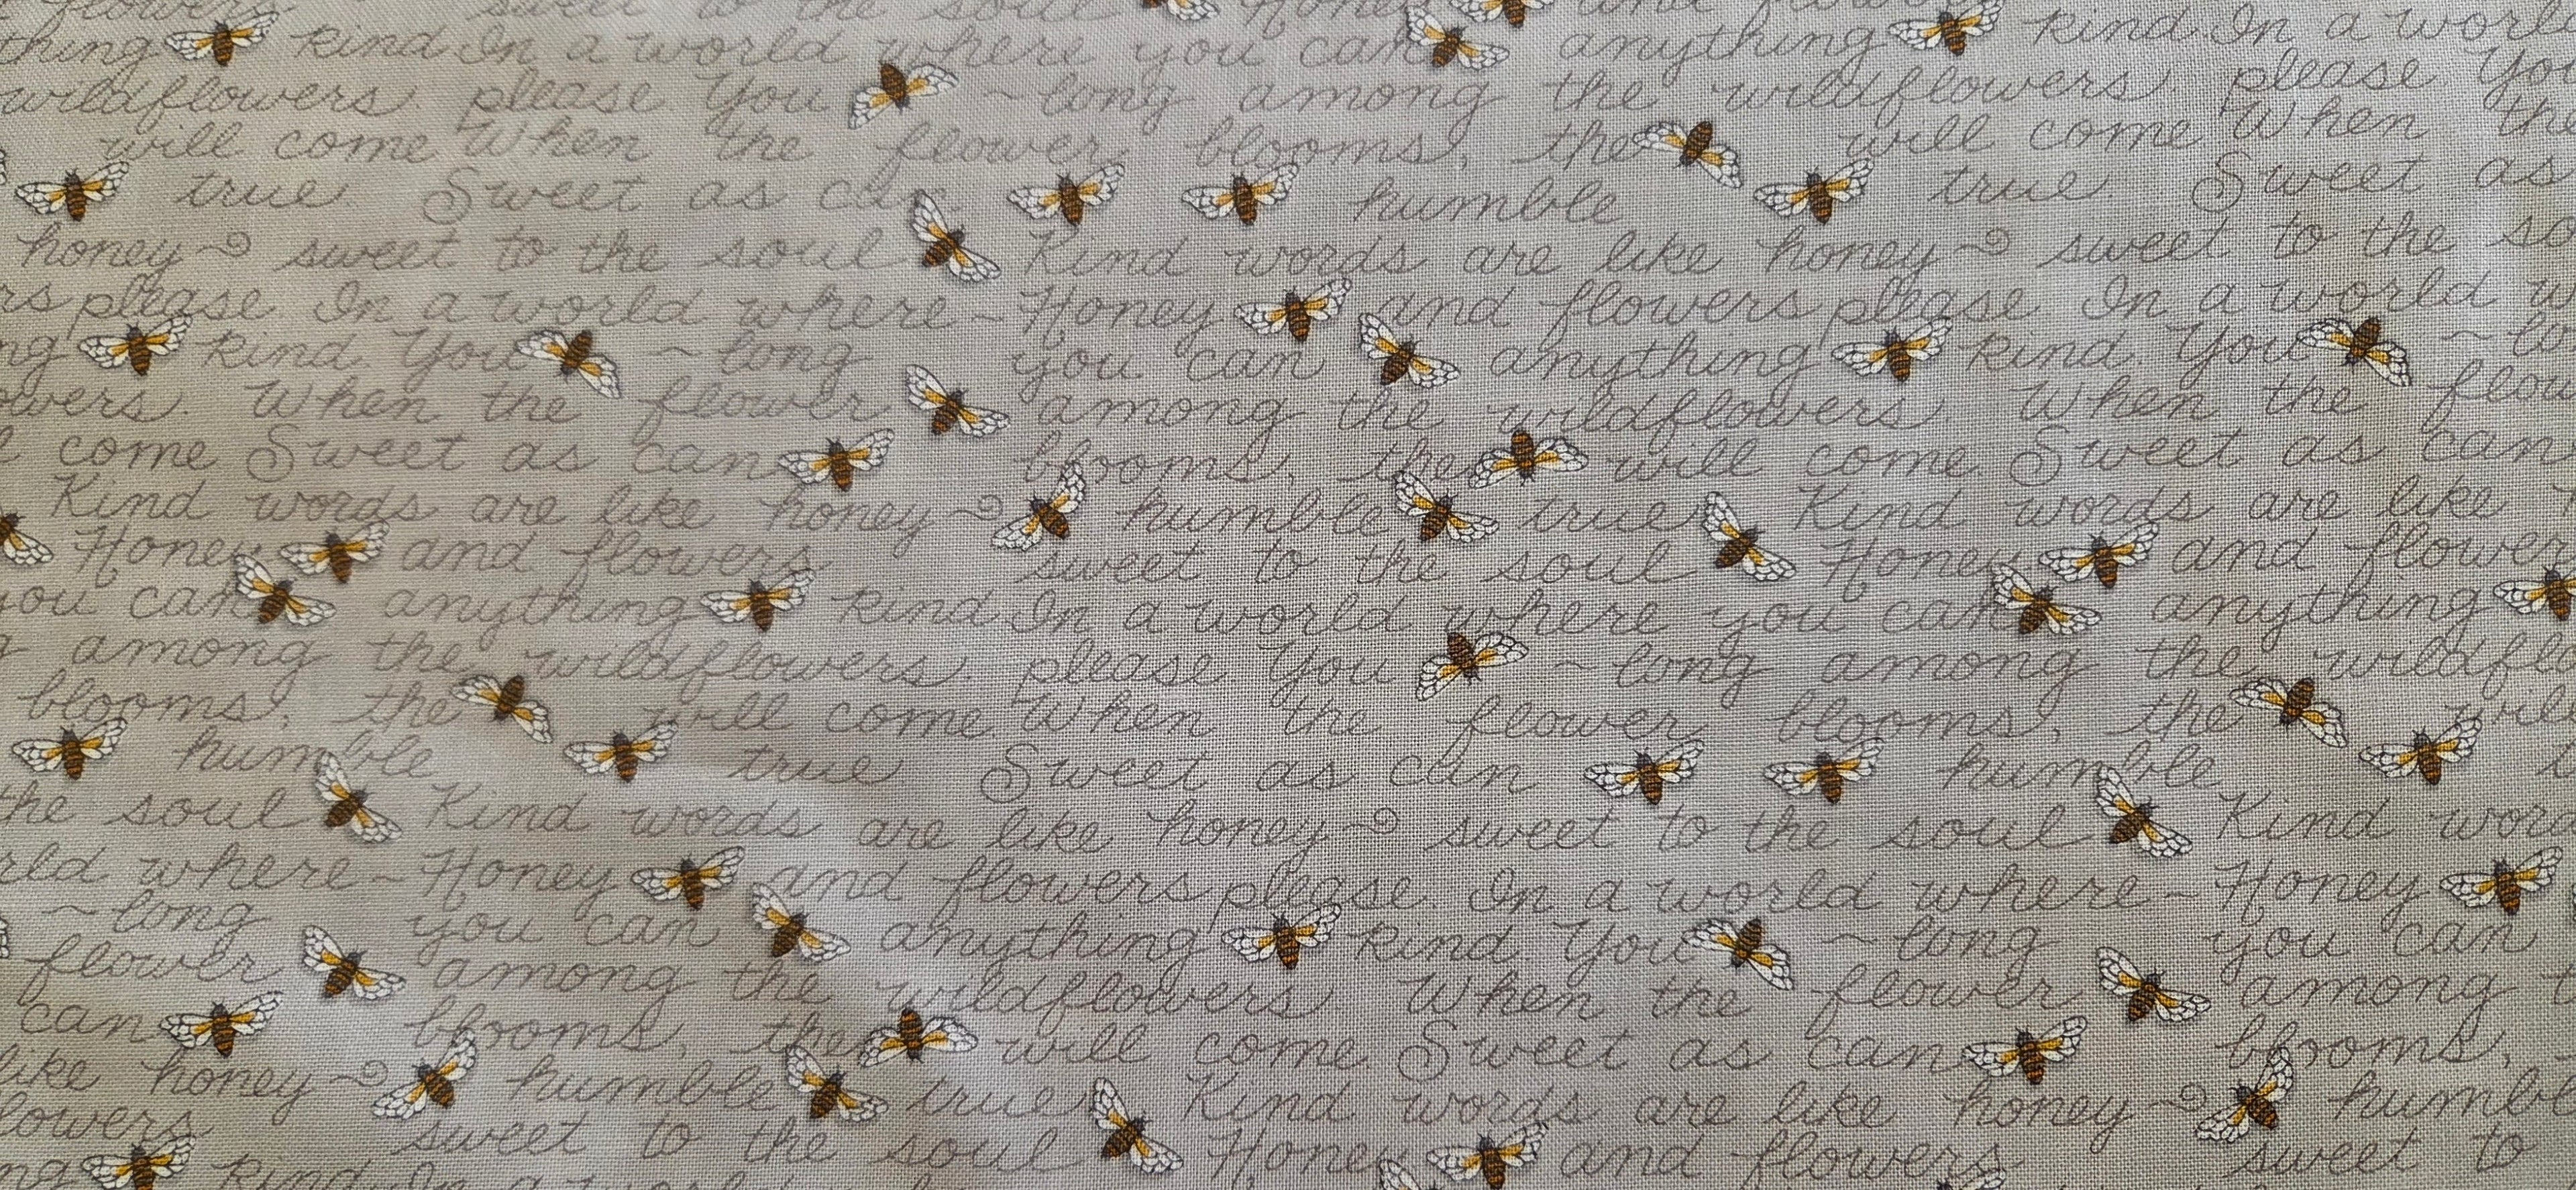 flowers sweet to the soul Honey and flowers
thing kind In a world where you can anything kind. In a worl
wildflowers. please. You ~ long among the wildflowers. please. You
will come When the flower blooms, the will come When the
true Sweet as can humble true. Sweet as
honey ~ sweet to the soul Kind words are like honey ~ sweet to the so
rs please. In a world where ~ Honey and flowers please. In a world w
ng kind. You ~ long you can anything kind. You ~ lo
owers. When the flower among the wildflowers. When the flow
l come Sweet as can blooms, the will come. Sweet as can
Kind words are like honey ~ humble true Kind words are like
Honey and flowers sweet to the soul Honey and flower
you can anything kind In a world where you can anything
g among the wildflowers. please. You ~ long among the wildflo
blooms, the will come. When the flower blooms, the wil
humble true Sweet as can humble
the soul Kind words are like honey ~ sweet to the soul Kind word
rld where ~ Honey and flowers please. In a world where ~ Honey
~ long you can anything kind. You ~ long you can
flower among the wildflowers. When the flower among t
can blooms, the will come. Sweet as can blooms,
like honey ~ humble true Kind words are like honey ~ humble
lowers sweet to the soul Honey and flowers sweet to
ng kind In a world